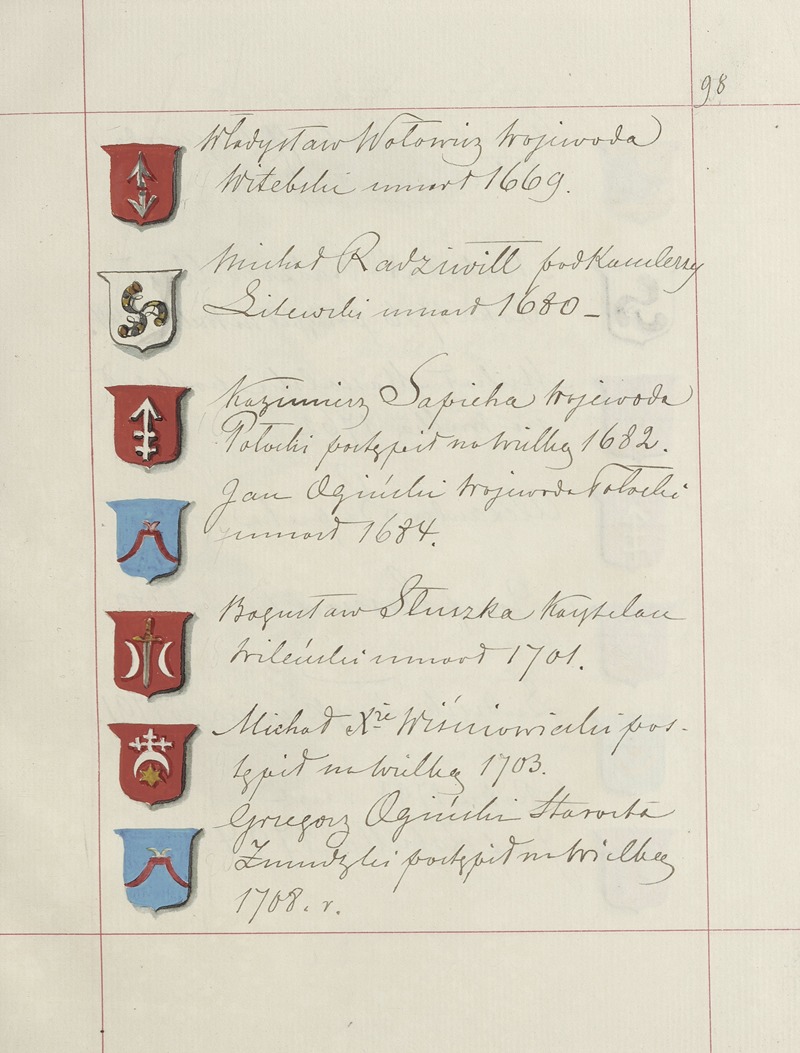 98
Władysław Wołowicz Wojewoda
Witebski umarł 1669.
Michał Radziwiłł podKanclerzy
Litewski umarł 1680 –
Kazimierz Sapieha Wojewoda
Połocki postąpił na Wielką 1682.
Jan Ogiński Wojewoda Połocki
umarł 1684.
Bogusław Słuszka Kasztelan
Wileński umarł 1701.
Michał Xże Wiśniowiecki pos-
tąpił na wielką 1703.
Grzegorz Ogiński Starosta
Żmudzki postąpił na Wielką
1708. r.